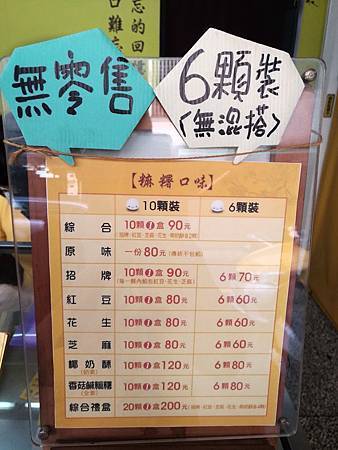 忘的回
口難忘
無零售
6顆裝
〈無混搭〉
【麻糬口味】
10顆裝 6顆裝
綜合 10顆1盒90元
原味 一份80元(傳統不包餡)
招牌 10顆1盒90元 6顆70元
(每一顆內餡包紅豆、花生、芝麻)
紅豆 10顆1盒80元 6顆60元
花生 10顆1盒80元 6顆60元
芝麻 10顆1盒80元 6顆60元
椰奶酥 10顆1盒120元 6顆80元
(奶素)
香菇鹹麻糬 10顆1盒120元 6顆80元
(全素)
綜合禮盒 20顆1盒200元